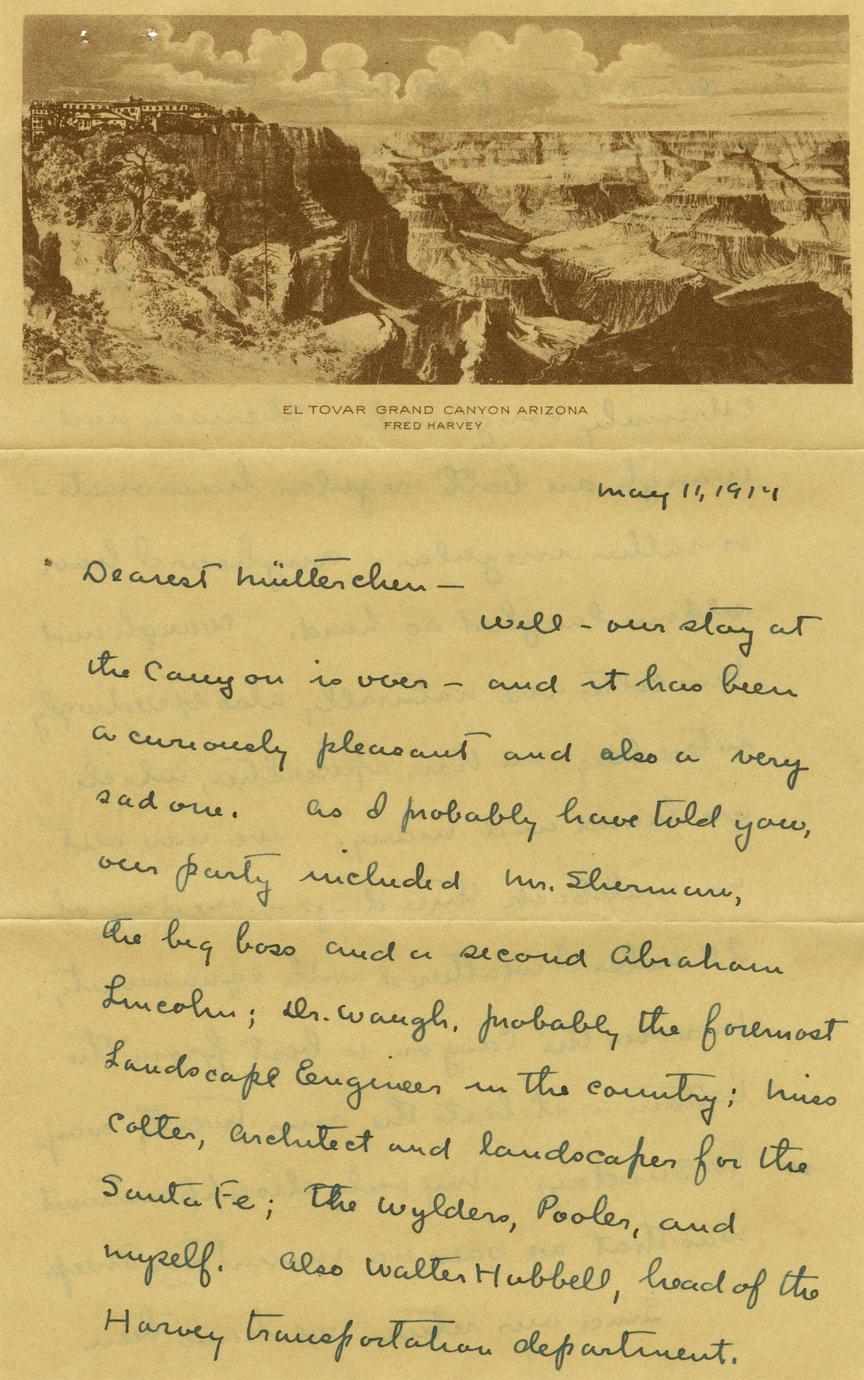 EL TOVAR GRAND CANYON ARIZONA
FRED HARVEY
May 11, 1917
Dearest Mütterchen —
Well - our stay at
the Canyon is over — and it has been
a curiously pleasant and also a very
sad one. As I probably have told you,
our party included Mr. Sherman,
the big boss and a second Abraham
Lincoln; Dr. Waugh, probably the foremost
Landscape Engineer in the country; Miss
Colter, architect and landscaper for the
Santa Fe; The Wylders, Pooler, and
myself. Also Walter Hubbell, head of the
Harvey transportation department.